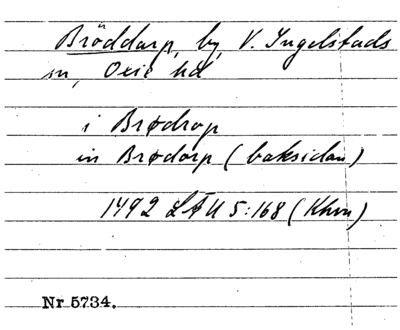 Bröddarp, by, V. Ingelstads
sn, Oxie hd
i Brødrop
in Brødorp (baksidan)
1492 LÅU 5:168 (Khvn)
Nr 5734.